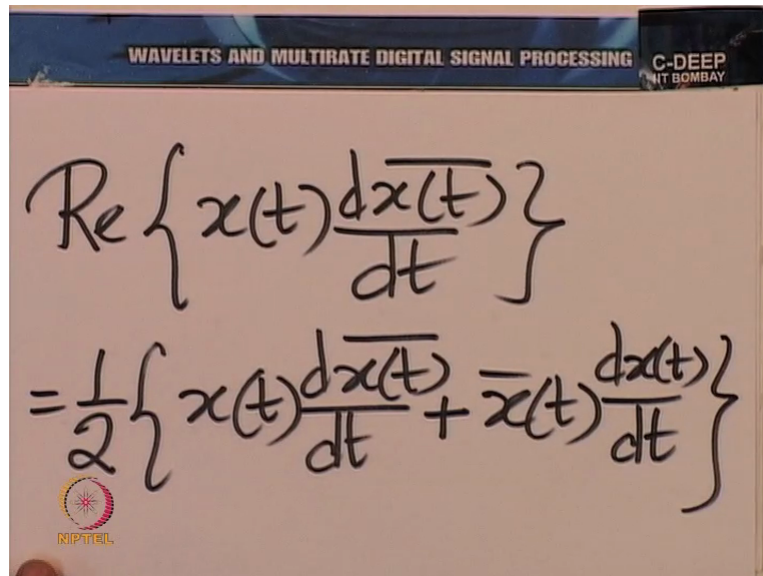 WAVELETS AND MULTIRATE DIGITAL SIGNAL PROCESSING
C-DEEP
IIT BOMBAY
Re{x(t) d\overline{x(t)}/dt}
= 1/2 {x(t) d\overline{x(t)}/dt + \overline{x}(t) dx(t)/dt}
NPTEL